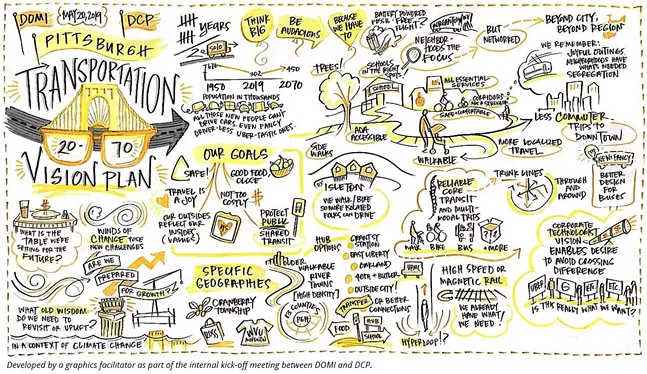 DOMI
MAY 20, 2019
DCP
PITTSBURGH
TRANSPORTATION
20-70
VISION PLAN
YEARS
2050
THINK
BIG
BE
AUDACIOUS
BECAUSE
WE HAVE
TO
BATTERY POWERED
FLIGHT?
BUT
NETWORKED
BEYOND CITY,
BEYOND REGION
NEIGHBOR-
HOODS THE
FOCUS
WE REMEMBER:
NEIGHBORHOODS HAVE
WHAT'S NEEDED
SEGREGATION
302
450
1950
2019
2070
POPULATION IN THOUSANDS
ALL THOSE NEW PEOPLE CAN'T
DRIVE CARS, EVEN FANCY
DRIVER-LESS UBER-TASTIC ONES
TREES!
SCHOOLS
IN THE RIGHT
SPOTS
SCHOOL
ALL ESSENTIAL
SERVICES
SAFE + COMFORTABLE
ADA
ACCESSIBLE
SIDE
WALKS
WALKABLE
MORE LOCALIZED
TRAVEL
LESS COMMUTER
TRIPS TO
DOWNTOWN
OUR GOALS
SAFE!
GOOD FOOD,
CLOSE
TRAVEL IS
A JOY
NOT TOO
COSTLY
OUR OUTSIDES
REFLECT OUR
INSIDES
VALUES
PROTECT
PUBLIC
SHARED
TRANSIT
WE WALK / BIKE
SO MORE ISOLATED
FOLKS CAN DRIVE
RELIABLE
CORE
TRANSIT
AND MULTI-
MODAL TRIPS
WALK
BIKE
BUS
+ MORE
TRUNK LINES
THROUGH
AND
AROUND
BETTER
DESIGN
FOR
BUSES
WHAT IS THE
TABLE WE'RE
SETTING FOR THE
FUTURE?
WINDS OF
CHANGE
NEW CHALLENGES
ARE WE
PREPARED
FOR GROWTH?
WHAT OLD WISDOM
DO WE NEED TO
REVISIT OR UPLIFT?
IN A CONTEXT OF CLIMATE CHANGE
SPECIFIC
GEOGRAPHIES
CRANBERRY
TOWNSHIP
ROSS
WVU
OLDER
WALKABLE
RIVER
TOWNS
(HIGH DENSITY)
HUB
OPTIONS
STATION
EAST LIBERTY
OAKLAND
40TH + BUTLER
OUTSIDE CITY!
TRANSFER OR BETTER
CONNECTIONS
FOOD
HUB
SCHOOL
HIGH SPEED OR
MAGNETIC RAIL
WE ALREADY
HAVE WHAT
WE NEED!
HYPERLOOP!?
CORPORATE
TECHNOLOGIST
VISION
ENABLES DESIRE
TO AVOID CROSSING
DIFFERENCE
UBER
G
ETC.
IS THIS REALLY WHAT WE WANT?
Developed by a graphics facilitator as part of the internal kick-off meeting between DOMI and DCP.